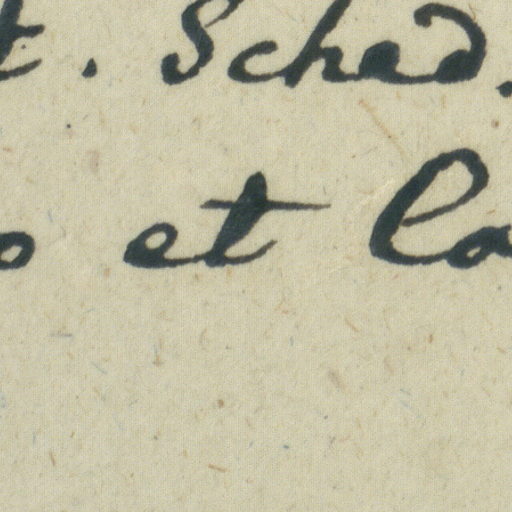 t. Sched.
o et la